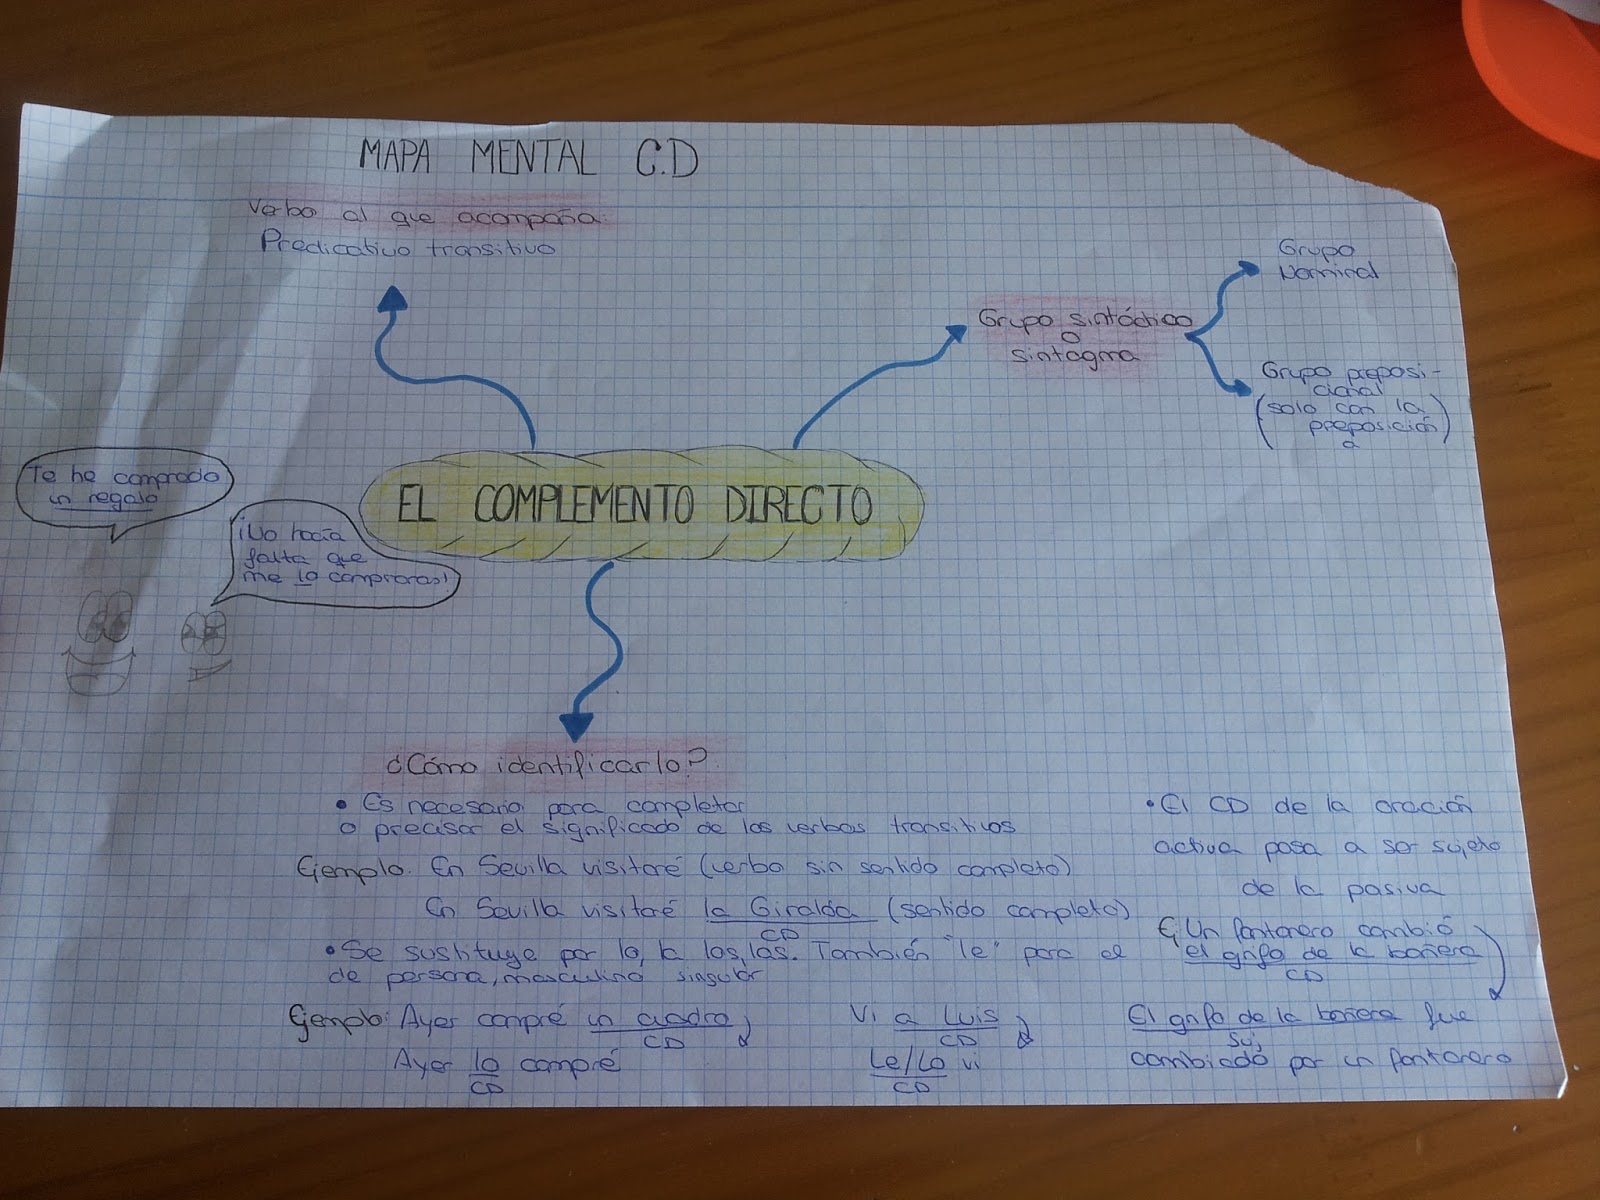 MAPA MENTAL C.D
Verbo al que acompaña:
Predicativo transitivo
Grupo
Nominal
Grupo sintáctico
o
sintagma
Grupo preposi-
cional
(solo con la
preposición)
a
Te he comprado
un regalo
¡No hacía
falta que
me lo compraras!
EL COMPLEMENTO DIRECTO
¿Cómo identificarlo?
• Es necesario para completar
o precisar el significado de los verbos transitivos
Ejemplo: En Sevilla visitaré (verbo sin sentido completo)
En Sevilla visitaré la Giralda (sentido completo)
CD
• Se sustituye por lo, la, los, las. También "le" para el
de persona, masculino singular
Ejemplo: Ayer compré un cuadro
CD
Ayer lo compré
CD
Vi a Luis
CD
Le/Lo vi
CD
• El CD de la oración
activa pasa a ser sujeto
de la pasiva
Ej: Un fontanero cambió
el grifo de la bañera
CD
El grifo de la bañera fue
Suj
cambiado por un fontanero